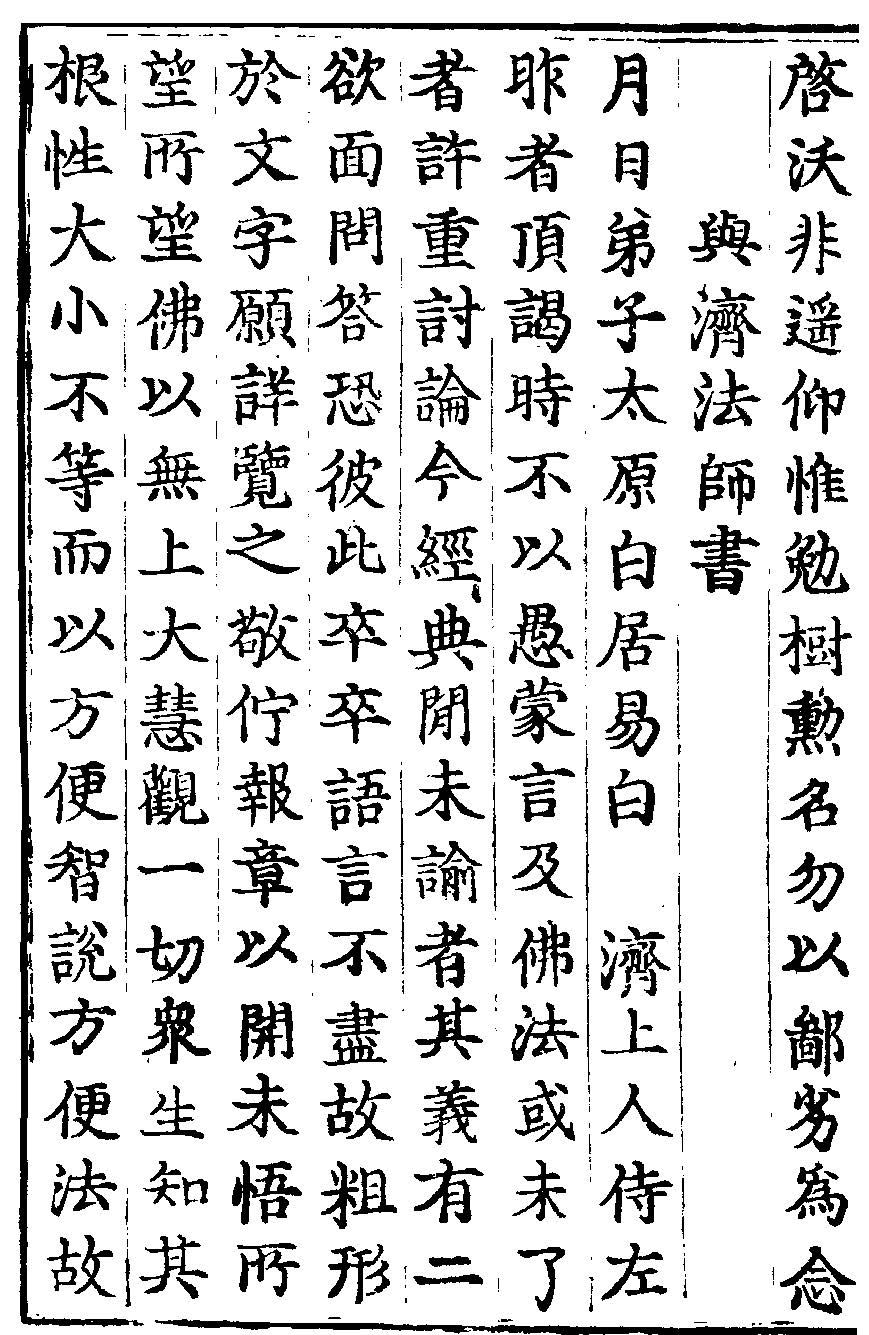 啓沃非遥仰惟勉樹勲名勿以鄙劣爲念
與濟法師書
月日弟子太原白居易白　濟上人侍左
昨者頂謁時不以愚蒙言及佛法或未了
者許重討論今經典閒未諭者其義有二
欲面問答恐彼此卒卒語言不盡故粗形
於文字願詳覽之敬佇報章以開未悟所
望所望佛以無上大慧觀一切衆生知其
根性大小不等而以方便智說方便法故